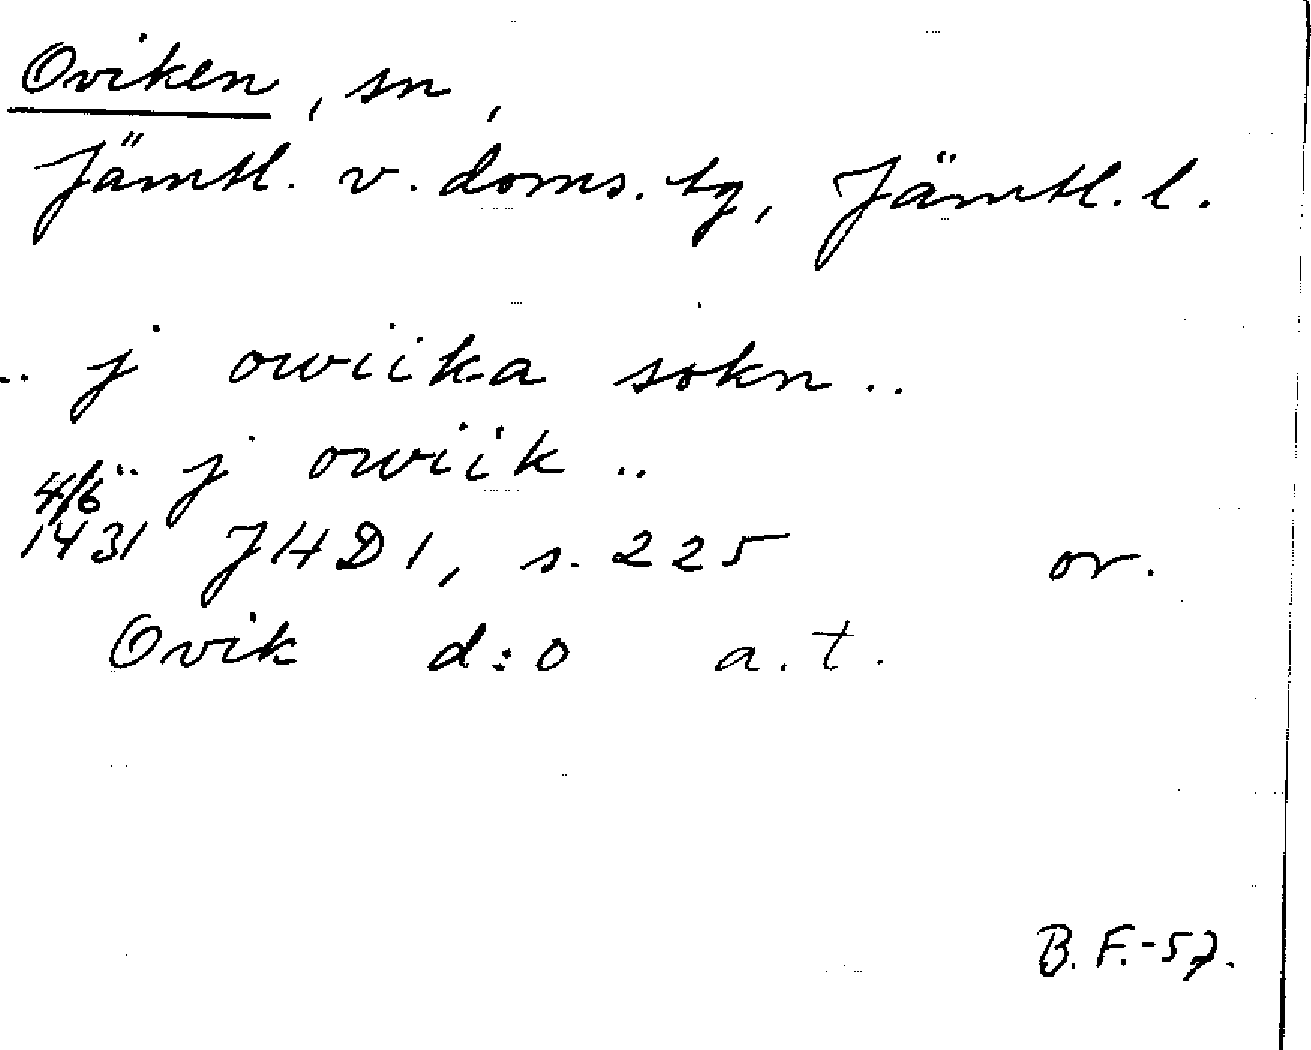 Oviken, sn,
Jämtl. v. doms. tg, Jämtl. l.
.. j owiika sokn ..
.. j owiik ..
4/6 1431 JHD1, s. 225 or.
Ovik d:o a.t.
B. F.-57.